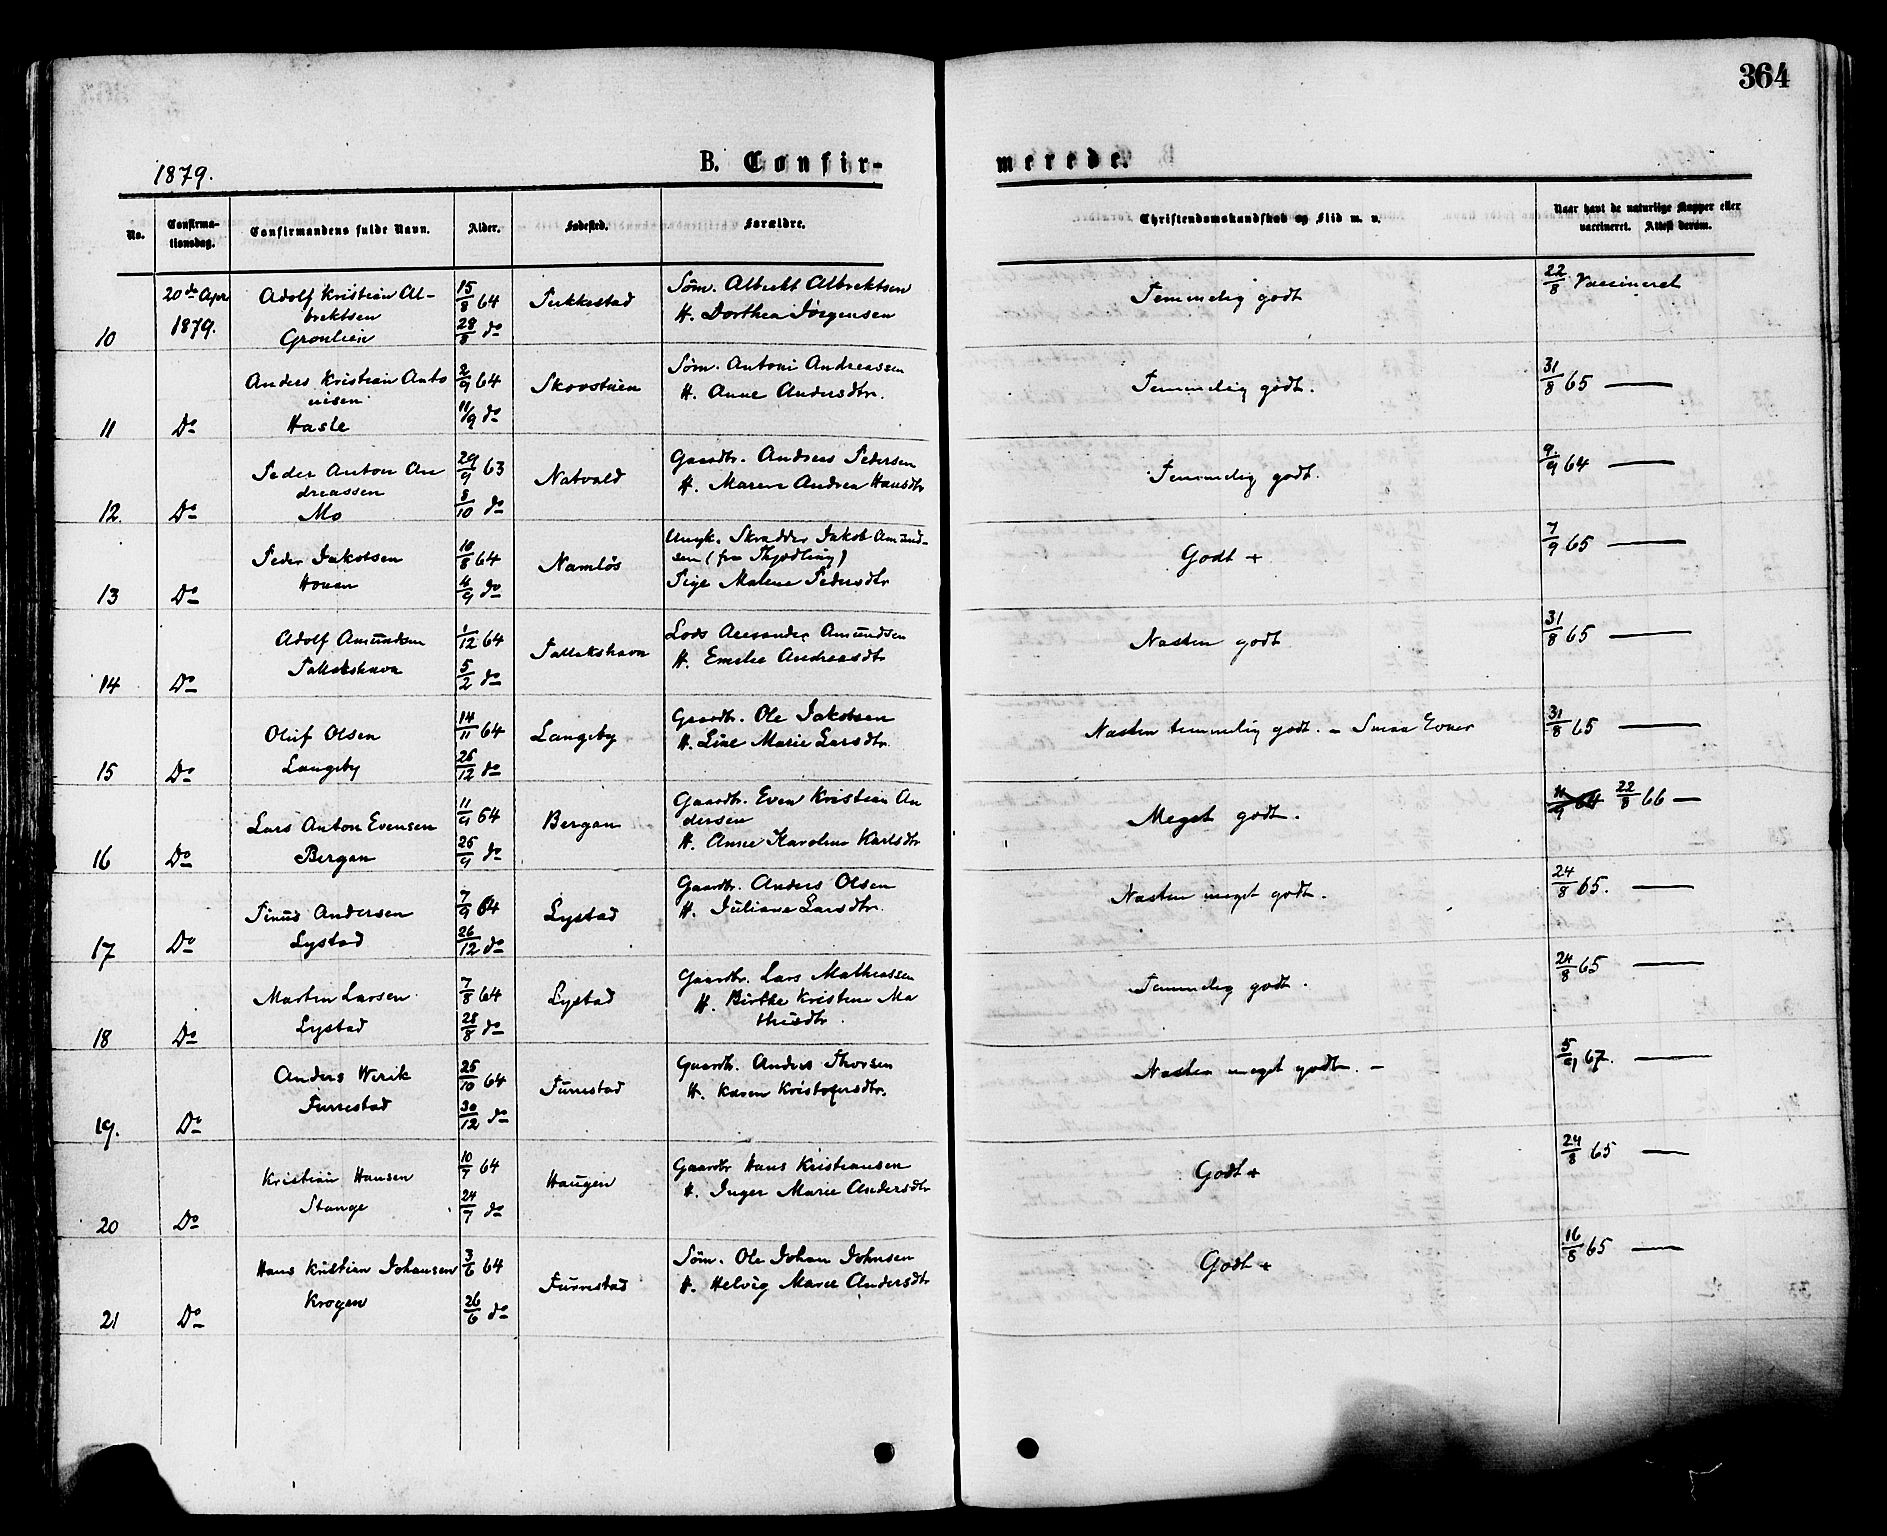 364
1879.
B. Confir-
merede.
No.
Confirma-
tionsdag.
Confirmandens fulde Navn.
Alder.
Fødested.
Forældre.
Christendomskundskab og Flid m. v.
Naar havt de naturlige Kopper eller
vaccineret. Attest derom.
10
20de Apr
1879.
Adolf Kristian Al-
brektsen
Gronlien
15/8 64
28/8 do
Søm. Albrekt Albrektsen
H. Dorthea Jørgensen
Temmelig godt
22/8 Vaccineret
11
Do
Anders Kristian Anto
nisen
Hasle
2/9 64
11/9 do
Skovstuen
Søm. Antoni Andreassen
H. Anne Andersdtr.
Temmelig godt.
31/8 65 —
12.
Do
Peder Anton An
dreassen
Mo
29/9 63
8/10 do
Natvald
Gaardbr. Andreas Pedersen
H. Maren Andrea Hansdtr
Temmelig godt.
9/9 64 —
13
Do
Peder Jakobsen
Houen
10/8 64
4/9 do
Namløs
Ungk. Skrædder Jakob Amund-
sen (fra Thjødling)
Pige Malene Pedersdtr
Godt +
7/9 65 —
14
Do
Adolf Amundsen
Tallakshavn
1/12 64
5/2 do
Tallakshavn
Lods Alexander Amundsen
H. Emilie Andreasdtr
Næsten godt
31/8 65 —
15
Do
Oluf Olsen
Langeby
14/11 64
26/12 do
Langeby
Gaardbr. Ole Jakobsen
H. Line Marie Larsdtr.
Næsten temmelig godt. – Smaa Evner
31/8 65 —
16
Do
Lars Anton Evensen
Bergan
11/9 64
25/9 do
Bergan
Gaardbr. Even Kristian An
dersen
H. Anne Karoline Karlsdtr
Meget godt.
11/9 64 22/8 66 —
17
Do
Andersen
Lystad
7/9 64
26/12 do
Lystad
Gaardbr. Anders Olsen
H. Juliane Larsdtr.
Næsten meget godt.
24/8 65. —
18
Do
Martin Larsen
Lystad
7/8 64
28/8 do
Lystad
Gaardbr. Lars Mathiassen
H. Birthe Kristine Ma
thisdtr.
Temmelig godt.
24/8 65 —
19.
Do
Anders Werik
Furrestad
25/10 64
30/12 do
Furrestad
Gaardbr. Anders Thorsen
H. Karen Kristofersdtr.
Næsten meget godt. –
5/9 67. —
20
Do
Kristian Hansen
Stange
10/7 64
24/7 do
Haugen
Gaardbr Hans Kristiansen
H. Inger Marie Andersdtr
Godt +
24/8 65 —
21
Do
Hans Kristian Johansen
Krogen
3/6 64
26/6 do
Furrestad
Søm. Ole Johan Johnsen
H. Helvig Maree Andersdtr
Godt +
16/8 65 —